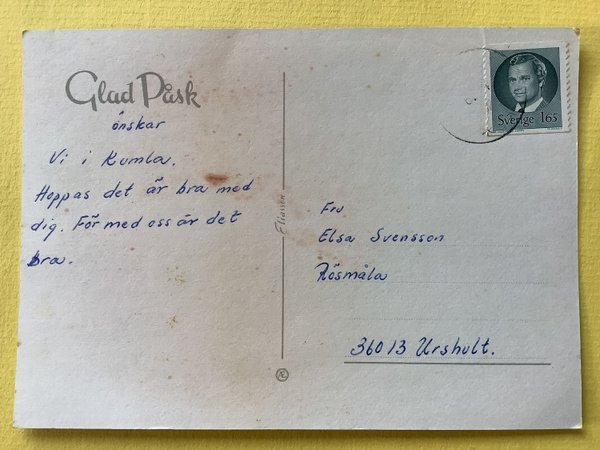 Glad Påsk
önskar
Vi i Kumla.
Hoppas det är bra med
dig. För med oss är det
bra.
Eliasson
Æ
Sverige 165
Fru
Elsa Svensson
Rösmåla
36013 Urshult.